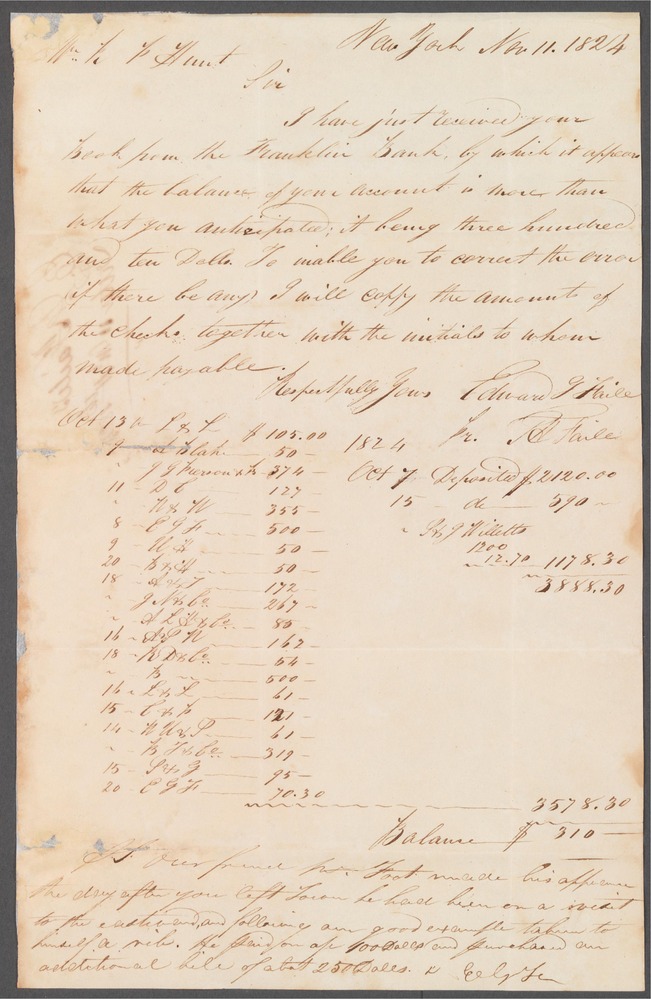 New York Nov 11. 1824
Mr F Hunt
Sir
I have just received your
Book from the Franklin Bank, by which it appears
that the balance of your account is more than
what you anticipated; it being three hundred
and ten Dolls. To inable you to correct the error
if there be any I will coppy the amounts of
the checks together with the initials to whom
made payable.
Respectfully Yours Edward G Faile
Fr. Faile
Oct 13th L & L $ 105.00
9 50 –
" J G Pierson 374 –
11 – D C 127
" 355 –
8 – E G F 500 –
9 – 50 –
20 – 50 –
18 – 172 –
" J N & Co. 267 –
" A L & Co. 85 –
16 – 162 –
18 – R D & Co. 54 –
" – 500 –
16 – L & L 61 –
15 – 121 –
14 – 61 –
" & Co. 319 –
15 – S & G 95 –
20 – E G F 70.30
1824
Oct 7 Deposited $2120.00
15 – do – 590 –
" S & G Willetts
1200
12.70 1178.30
3888.30
3578.30
Balance $ 310 –
PS Our friend Mr. Foot made his appearance
the day after you left Town he had been on a visit
to the eastward, and following our good example taken to
himself a rib. He paid on a/c 100 Dolls and purchased an
additional bill of abot 250 Dolls.